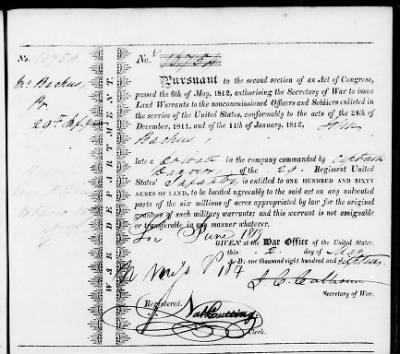 No. 12754
No. 12754
Backus,
WAR DEPARTMENT.
Pursuant to the second section of an Act of Congress,
passed the 6th of May, 1812, authorising the Secretary of War to issue
Land Warrants to the noncommissioned Officers and Soldiers enlisted in
the service of the United States, conformably to the acts of the 24th of
December, 1811, and of the 11th of January, 1812,
Backus,
late a Private in the company commanded by Captain
of the 29 Regiment United
States' Infantry is entitled to ONE HUNDRED AND SIXTY
ACRES OF LAND, to be located agreeably to the said act on any unlocated
parts of the six millions of acres appropriated by law for the original
grantees of such military warrants; and this warrant is not assignable
or transferable in any manner whatever.
June 1819
GIVEN at the War Office of the United States,
this 2 day of
A. D. one thousand eight hundred and
J. C. Calhoun
Secretary of War.
Registered.
Nat Cutting
Clerk.